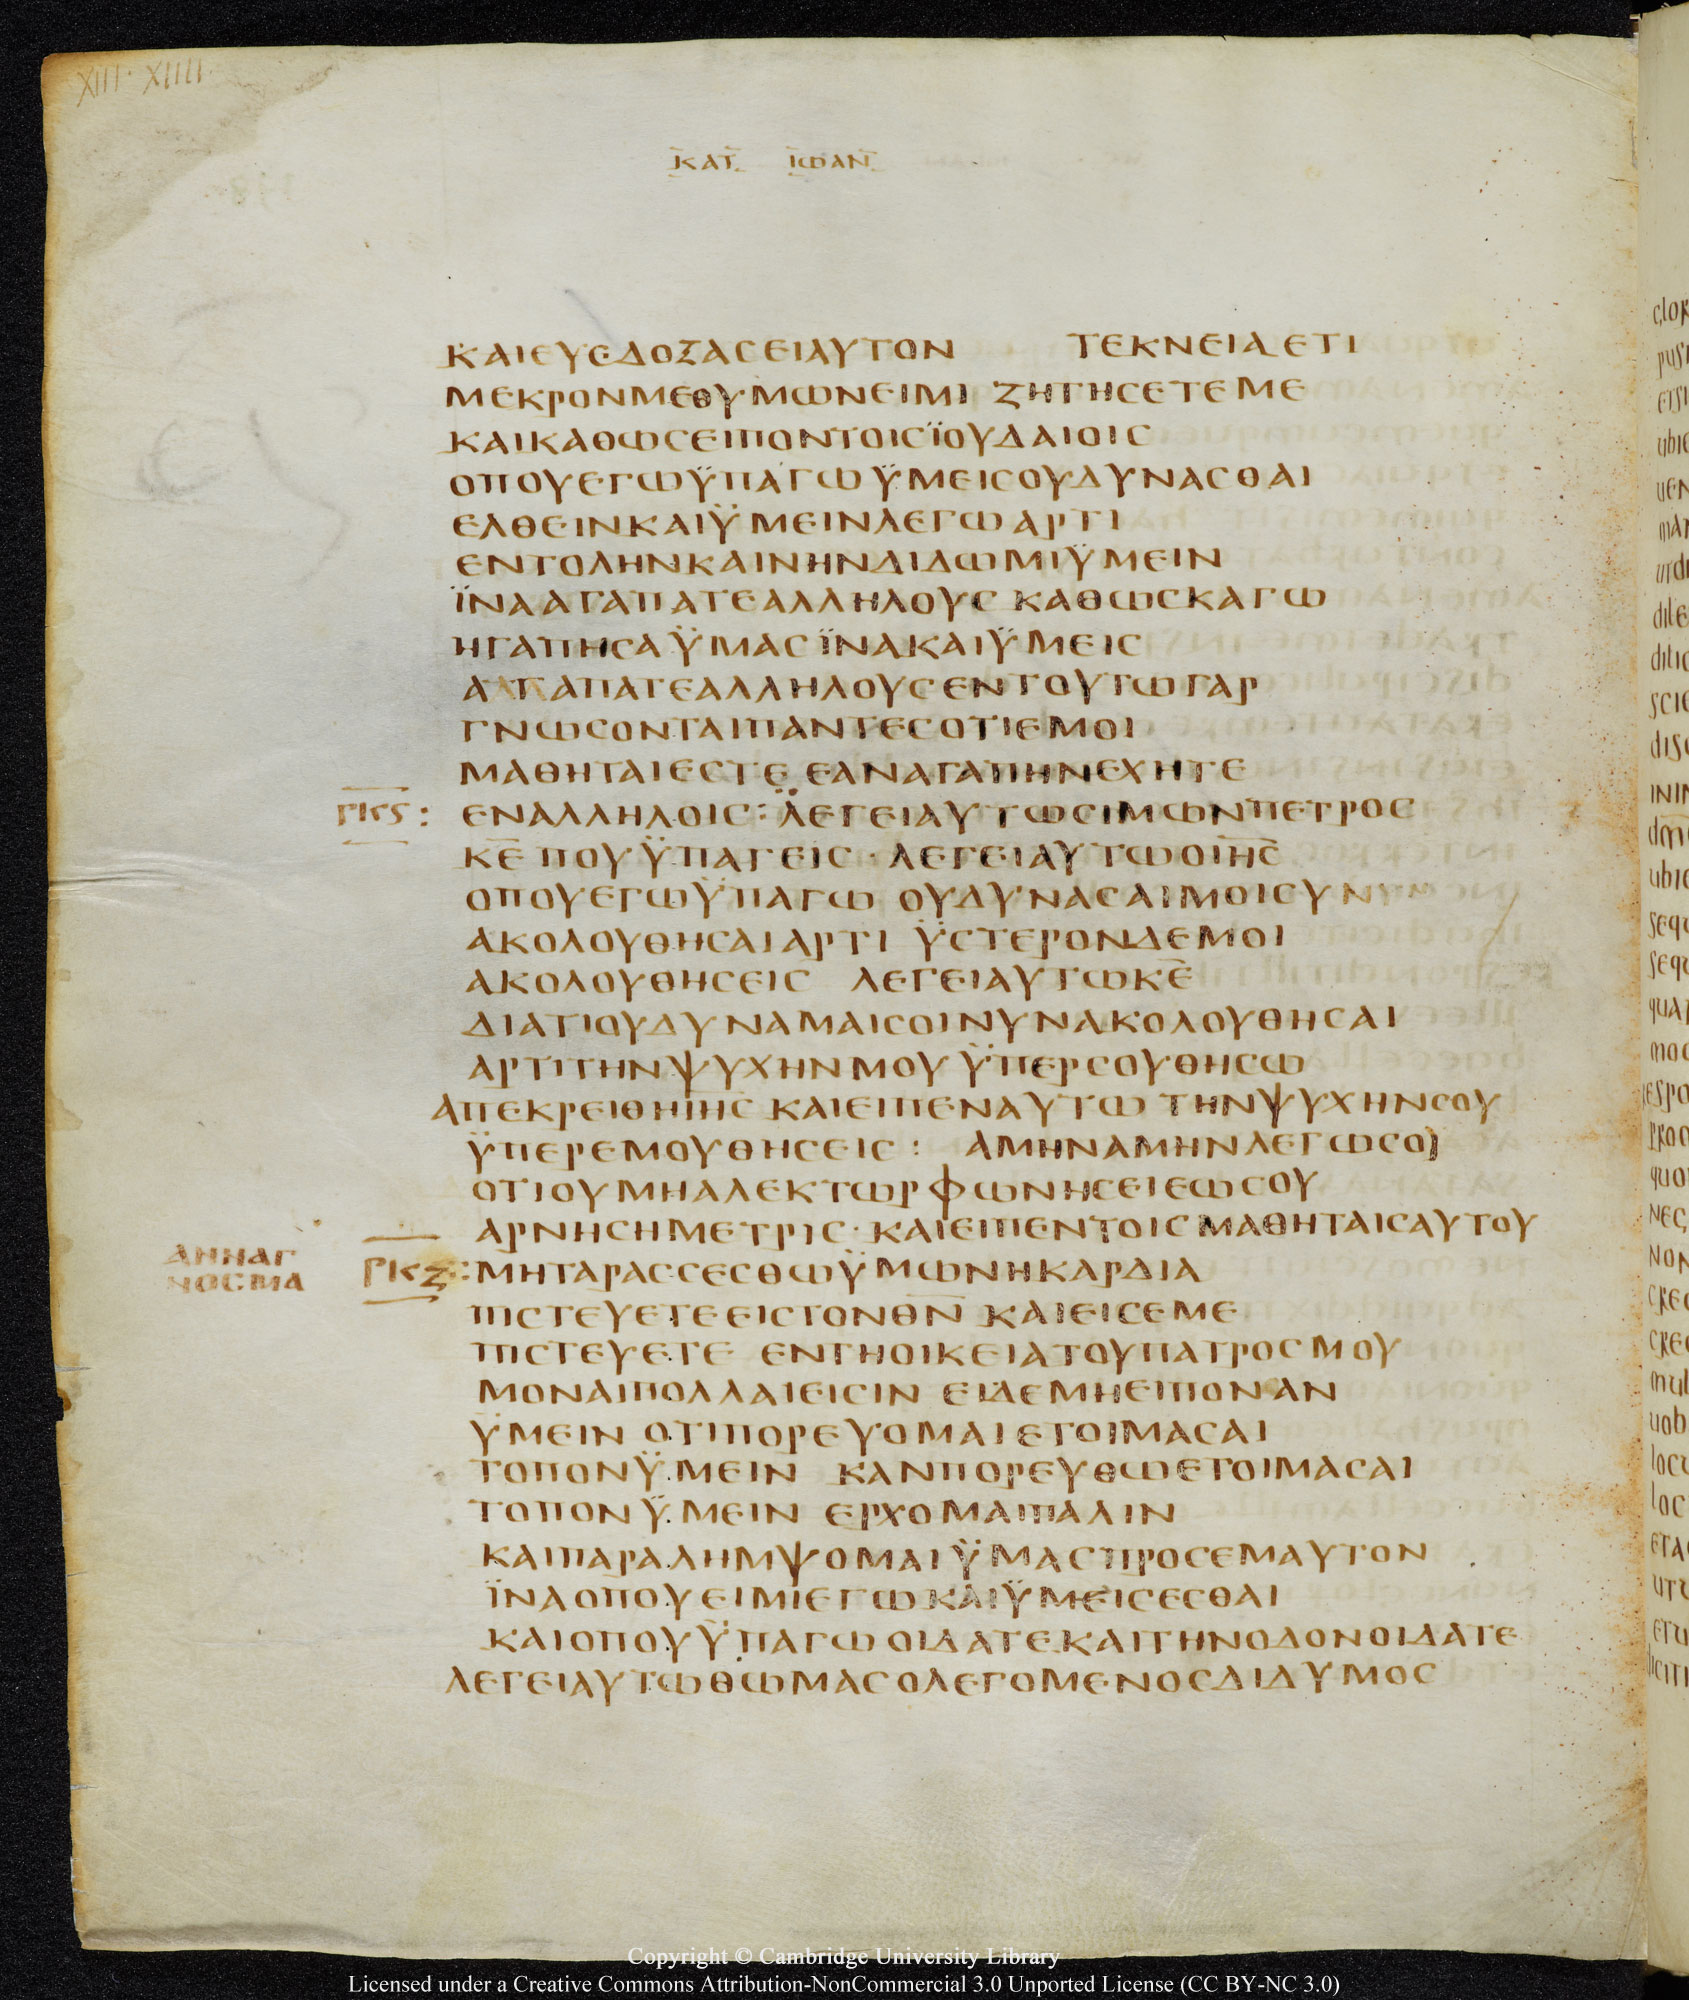 XIII· XIIII
ΚΑΤ ΙΩΑΝ
ΚΑΙΕΥΕΔΟΞΑϹΕΙΑΥΤΟΝ ΤΕΚΝΕΙΑ ΕΤΙ
ΜΕΚΡΟΝΜΕΘΥΜΩΝΕΙΜΙ ΖΗΤΗϹΕΤΕΜΕ
ΚΑΙΚΑΘΩϹΕΙΠΟΝΤΟΙϹΪΟΥΔΑΙΟΙϹ
ΟΠΟΥΕΓΩΫΠΑΓΩΫΜΕΙϹΟΥΔΥΝΑϹΘΑΙ
ΕΛΘΕΙΝΚΑΙΫΜΕΙΝΛΕΓΩ ΑΡΤΙ
ΕΝΤΟΛΗΝΚΑΙΝΗΝΔΙΔΩΜΙΫΜΕΙΝ
ΪΝΑΑΓΑΠΑΤΕΑΛΛΗΛΟΥϹ ΚΑΘΩϹΚΑΓΩ
ΗΓΑΠΗϹΑΫΜΑϹΪΝΑΚΑΙΫΜΕΙϹ
ΑΓΑΠΑΤΕΑΛΛΗΛΟΥϹΕΝΤΟΥΤΩΓΑΡ
ΓΝΩϹΟΝΤΑΙΠΑΝΤΕϹΟΤΙΕΜΟΙ
ΜΑΘΗΤΑΙΕϹΤΕ ΕΑΝΑΓΑΠΗΝΕΧΗΤΕ
ΓΚϚ : ΕΝΑΛΛΗΛΟΙϹ : ΛΕΓΕΙΑΥΤΩϹΙΜΩΝΠΕΤΡΟϹ
ΚΕ̅ ΠΟΥΫΠΑΓΕΙϹ · ΛΕΓΕΙΑΥΤΩΟΙΗϹ̅
ΟΠΟΥΕΓΩΫΠΑΓΩ ΟΥΔΥΝΑϹΑΙΜΟΙϹΥΝ
ΑΚΟΛΟΥΘΗϹΑΙΑΡΤΙ ΫϹΤΕΡΟΝΔΕΜΟΙ
ΑΚΟΛΟΥΘΗϹΕΙϹ ΛΕΓΕΙΑΥΤΩΚΕ̅
ΔΙΑΤΙΟΥΔΥΝΑΜΑΙϹΟΙΝΥΝΑΚΟΛΟΥΘΗϹΑΙ
ΑΡΤΙΤΗΝΨΥΧΗΝΜΟΥΫΠΕΡϹΟΥΘΗϹΩ
ΑΠΕΚΡΕΙΘΗΙΗϹ̅ ΚΑΙΕΙΠΕΝΑΥΤΩ ΤΗΝΨΥΧΗΝϹΟΥ
ΫΠΕΡΕΜΟΥΘΗϹΕΙϹ : ΑΜΗΝΑΜΗΝΛΕΓΩϹΟΙ
ΟΤΙΟΥΜΗΑΛΕΚΤΩΡΦΩΝΗϹΕΙΕΩϹΟΥ
ΑΡΝΗϹΗΜΕΤΡΙϹ · ΚΑΙΕΙΠΕΝΤΟΙϹΜΑΘΗΤΑΙϹΑΥΤΟΥ
ΑΝΝΑΓ
ΝΟϹΜΑ
ΓΚΖ : ΜΗΤΑΡΑϹϹΕϹΘΩΫΜΩΝΗΚΑΡΔΙΑ
ΠΙϹΤΕΥΕΤΕΕΙϹΤΟΝΘΝ̅ ΚΑΙΕΙϹΕΜΕ
ΠΙϹΤΕΥΕΤΕ ΕΝΤΗΟΙΚΕΙΑΤΟΥΠΑΤΡΟϹΜΟΥ
ΜΟΝΑΙΠΟΛΛΑΙΕΙϹΙΝ ΕΙΔΕΜΗΕΙΠΟΝΑΝ
ΫΜΕΙΝ ΟΤΙΠΟΡΕΥΟΜΑΙΕΤΟΙΜΑϹΑΙ
ΤΟΠΟΝΫΜΕΙΝ ΚΑΝΠΟΡΕΥΘΩΕΤΟΙΜΑϹΑΙ
ΤΟΠΟΝΫΜΕΙΝ ΕΡΧΟΜΑΙΠΑΛΙΝ
ΚΑΙΠΑΡΑΛΗΜΨΟΜΑΙΫΜΑϹΠΡΟϹΕΜΑΥΤΟΝ
ΪΝΑΟΠΟΥΕΙΜΙΕΓΩΚΑΙΫΜΕΙϹΕϹΘΑΙ
ΚΑΙΟΠΟΥΫΠΑΓΩΟΙΔΑΤΕΚΑΙΤΗΝΟΔΟΝΟΙΔΑΤΕ
ΛΕΓΕΙΑΥΤΩΘΩΜΑϹΟΛΕΓΟΜΕΝΟϹΔΙΔΥΜΟϹ
Copyright © Cambridge University Library
Licensed under a Creative Commons Attribution-NonCommercial 3.0 Unported License (CC BY-NC 3.0)